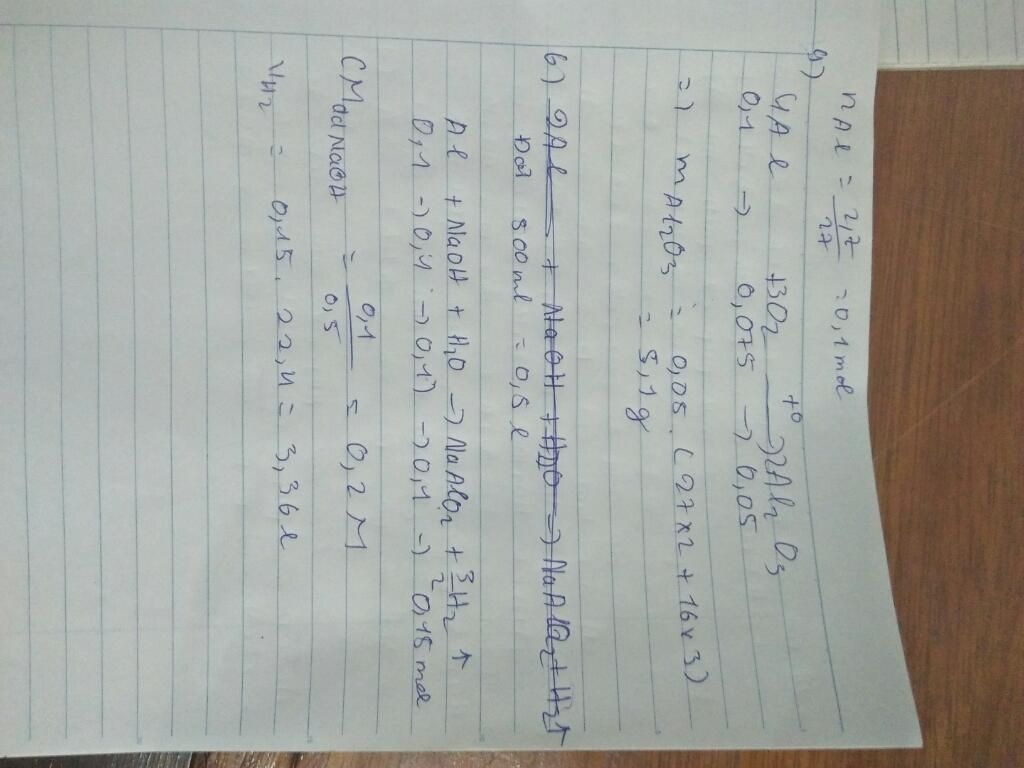 n Al = 2,7/27 = 0,1 mol
a)
4Al + 3O2 t° → 2Al2O3
0,1 → 0,075 → 0,05
=) m Al2O3 = 0,05. (27x2 + 16x3)
= 5,1g
b) 2Al + NaOH + H2O → NaAlO2 + H2↑
Đổi 500ml = 0,5l
Al + NaOH + H2O → NaAlO2 + 3/2 H2 ↑
0,1 → 0,1 → 0,1 → 0,1 → 0,15 mol
CM dd NaOH = 0,1/0,5 = 0,2 M
VH2 = 0,15. 22,4 = 3,36 l